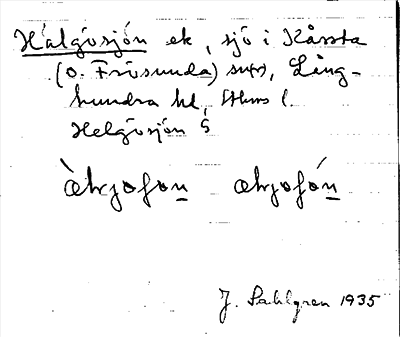 Hälgösjön ek, sjö i Kårsta
(o. Frösunda) snr, Lång-
hundra hd, Sthms l.
Helgösjön
J. Sahlgren 1935